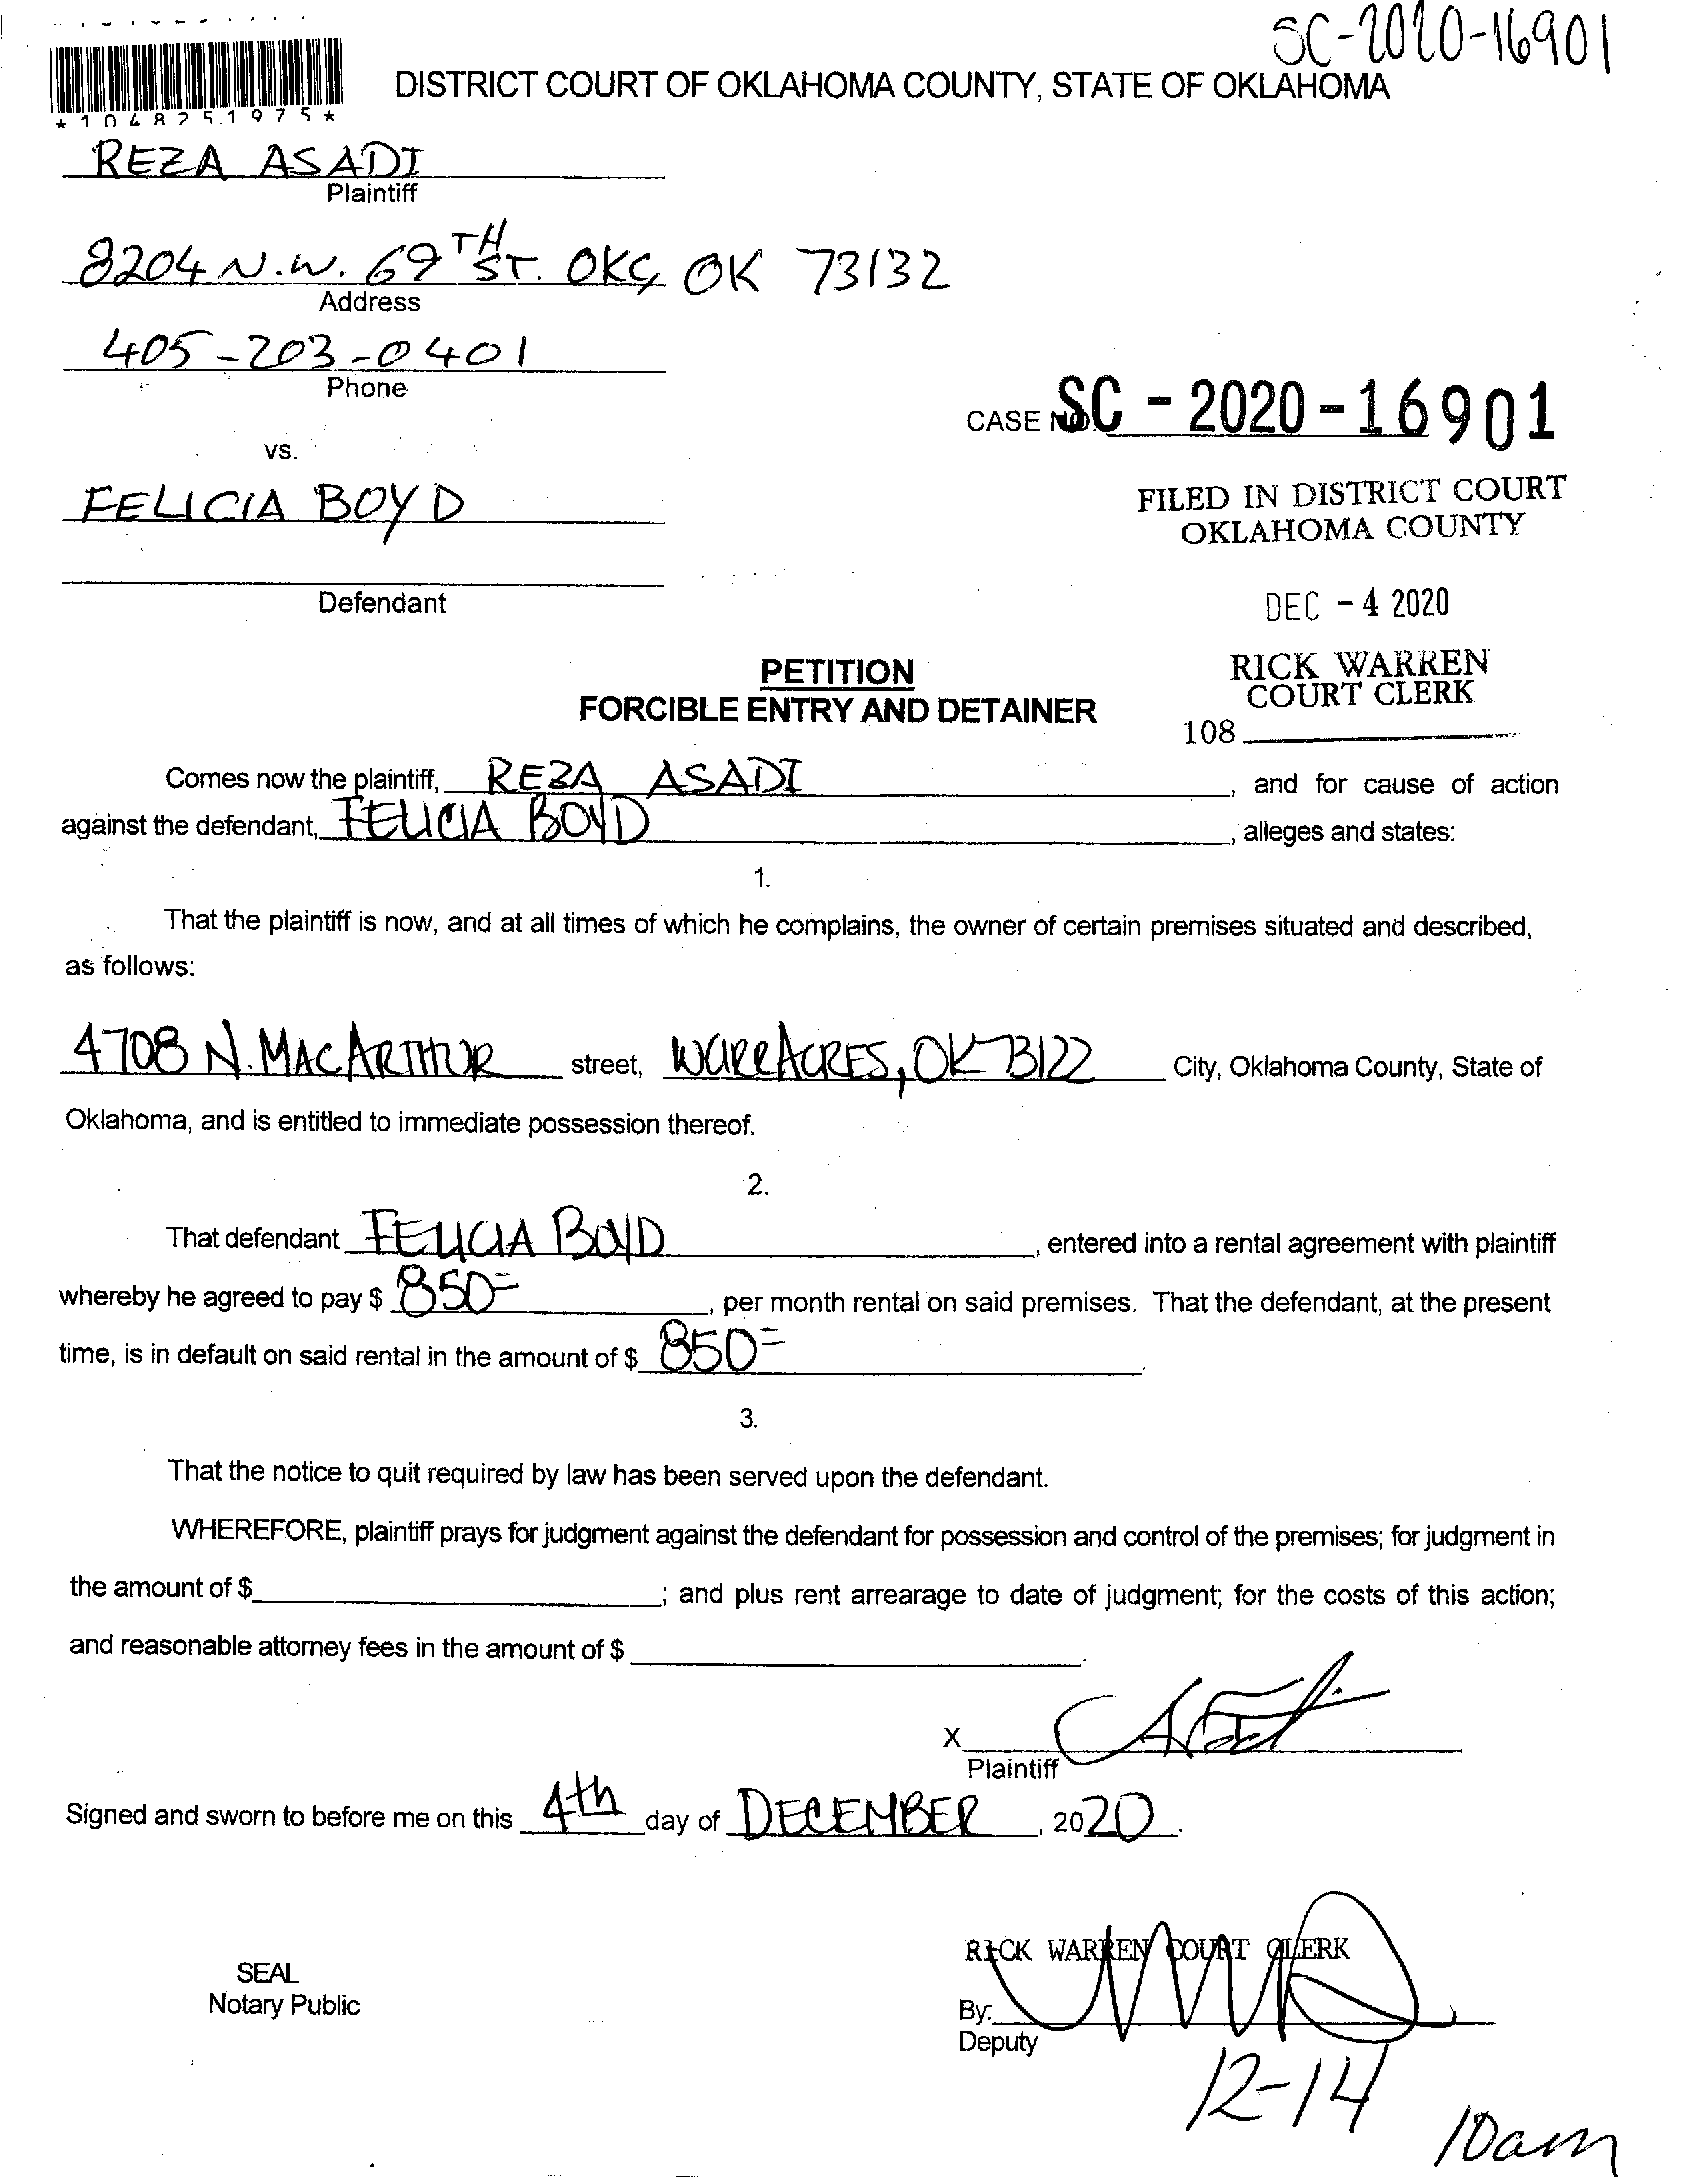 SC-2020-16901
DISTRICT COURT OF OKLAHOMA COUNTY, STATE OF OKLAHOMA
* 1 0 4 8 2 5 1 9 7 5 *
REZA ASADI
Plaintiff
8204 N.W. 69TH ST. OKC, OK 73132
Address
405-203-0401
Phone
CASE NO. SC - 2020 - 16901
vs.
FELICIA BOYD
FILED IN DISTRICT COURT
OKLAHOMA COUNTY
Defendant
DEC - 4 2020
PETITION
RICK WARREN
COURT CLERK
FORCIBLE ENTRY AND DETAINER
108
Comes now the plaintiff, REZA ASADI, and for cause of action
against the defendant, FELICIA BOYD, alleges and states:
1.
That the plaintiff is now, and at all times of which he complains, the owner of certain premises situated and described,
as follows:
4708 N. MACARTHUR street, WARR ACRES, OK 73122 City, Oklahoma County, State of
Oklahoma, and is entitled to immediate possession thereof.
2.
That defendant FELICIA BOYD, entered into a rental agreement with plaintiff
whereby he agreed to pay $ 850=, per month rental on said premises. That the defendant, at the present
time, is in default on said rental in the amount of $ 850=.
3.
That the notice to quit required by law has been served upon the defendant.
WHEREFORE, plaintiff prays for judgment against the defendant for possession and control of the premises; for judgment in
the amount of $ ; and plus rent arrearage to date of judgment; for the costs of this action;
and reasonable attorney fees in the amount of $ .
X
Plaintiff
Signed and sworn to before me on this 4th day of DECEMBER, 2020.
RICK WARREN COURT CLERK
SEAL
Notary Public
By:
Deputy
12-14
10am